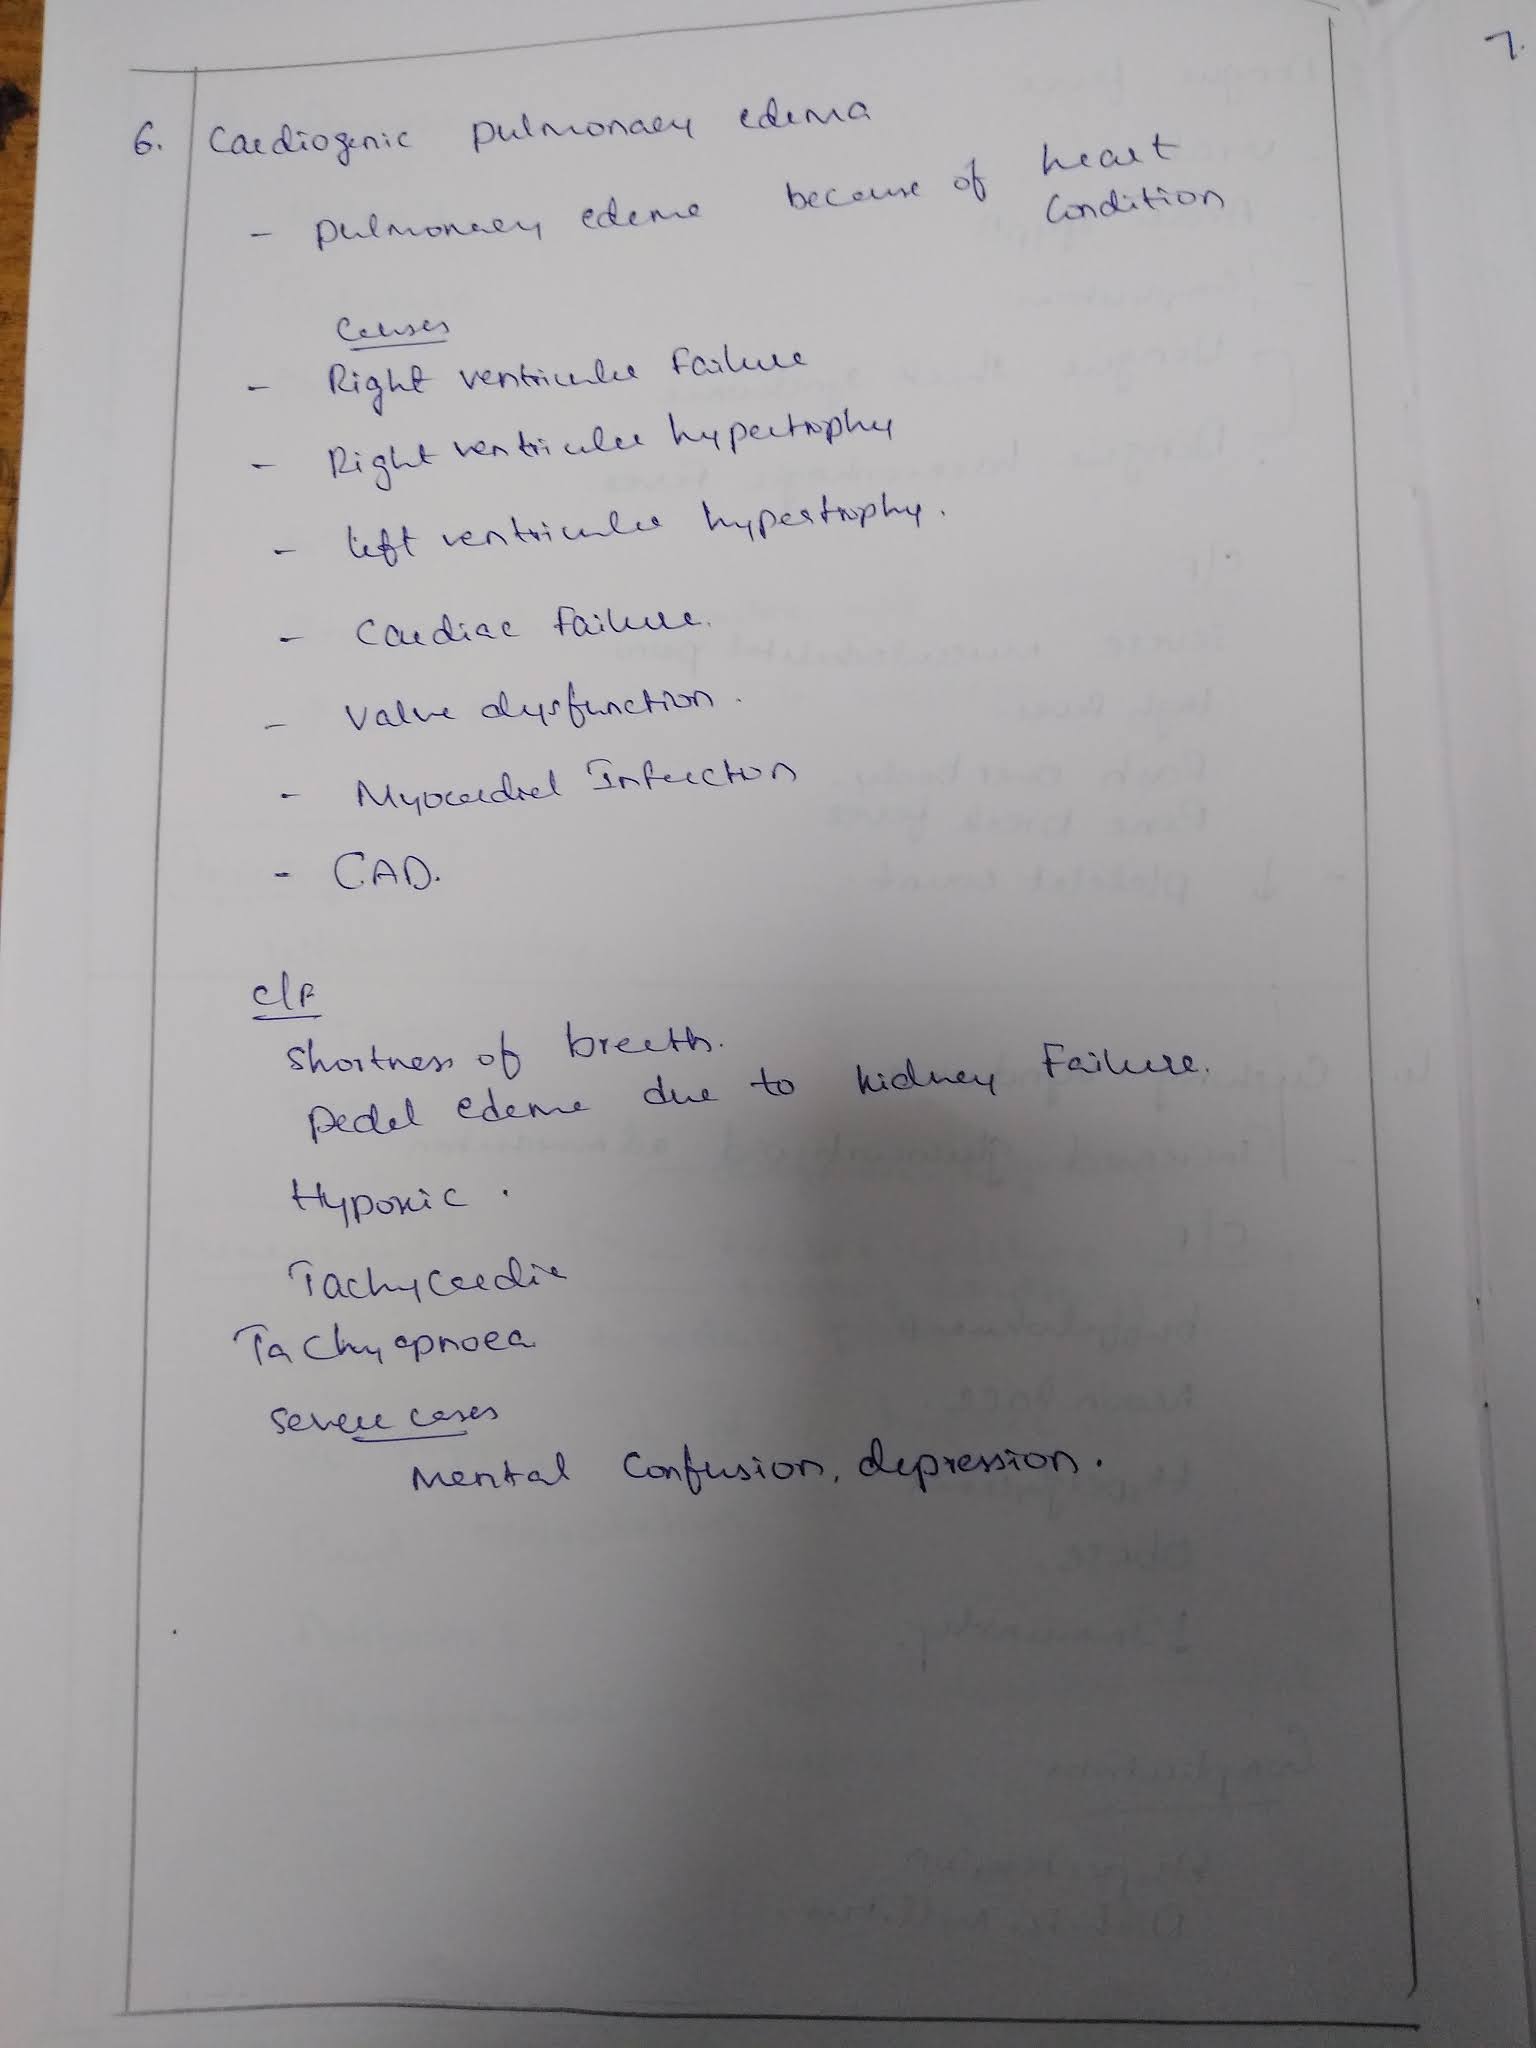 6. Cardiogenic pulmonary edema
- pulmonary edema because of heart
condition
Causes
- Right ventricular failure
- Right ventricular hypertrophy
- left ventricular hypertrophy.
- Cardiac failure.
- Valve dysfunction.
- Myocardial Infarction
- CAD.
c/f
Shortness of breath.
Pedal edema due to kidney failure.
Hypoxic.
Tachycardia
Tachyapnoea
Severe cases
Mental Confusion, depression.
7.